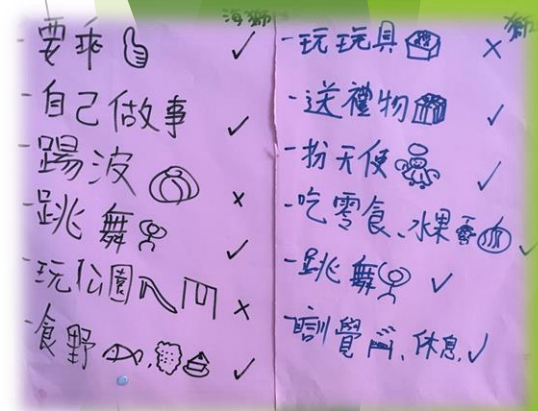 海獅
-要乖 ✓
-自己做事 ✓
-踢波 ×
-跳舞 ✓
-玩公園 ×
-食野 . ✓
獅
-玩玩具 ×
-送禮物 ✓
-扮天使 ✓
-吃零食、水果 ✓
-跳舞 ✓
瞓覺、休息 ✓